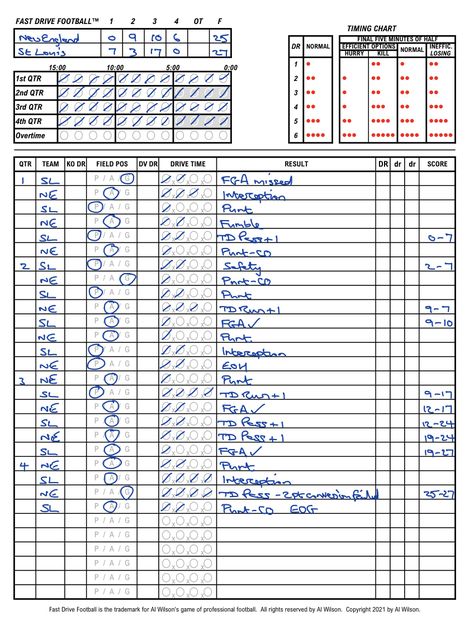 FAST DRIVE FOOTBALL™ 1 2 3 4 OT F
New England 0 9 10 6 25
St Louis 7 3 17 0 27
15:00 10:00 5:00 0:00
1st QTR
2nd QTR
3rd QTR
4th QTR
Overtime
TIMING CHART
FINAL FIVE MINUTES OF HALF
DR NORMAL EFFICIENT OPTIONS NORMAL INEFFIC.
HURRY KILL LOSING
1
2
3
4
5
6
QTR TEAM KO DR FIELD POS DV DR DRIVE TIME RESULT DR dr dr SCORE
1 SL P / A / G FGA missed
NE P / A / G Interception
SL P / A / G Punt
NE P / A / G Fumble
SL P / A / G TD Pass +1 0-7
NE P / A / G Punt-CO
2 SL P / A / G Safety 2-7
NE P / A / G Punt-CO
SL P / A / G Punt
NE P / A / G TD Run +1 9-7
SL P / A / G FGA ✓ 9-10
NE P / A / G Punt
SL P / A / G Interception
NE P / A / G EOH
3 NE P / A / G Punt
SL P / A / G TD Run +1 9-17
NE P / A / G FGA ✓ 12-17
SL P / A / G TD Pass +1 12-24
NE P / A / G TD Pass +1 19-24
SL P / A / G FGA ✓ 19-27
4 NE P / A / G Punt
SL P / A / G Interception
NE P / A / G TD Pass - 2pt conversion failed 25-27
SL P / A / G Punt-CO EOG
P / A / G
P / A / G
P / A / G
P / A / G
Fast Drive Football is the trademark for Al Wilson's game of professional football. All rights reserved by Al Wilson. Copyright 2021 by Al Wilson.